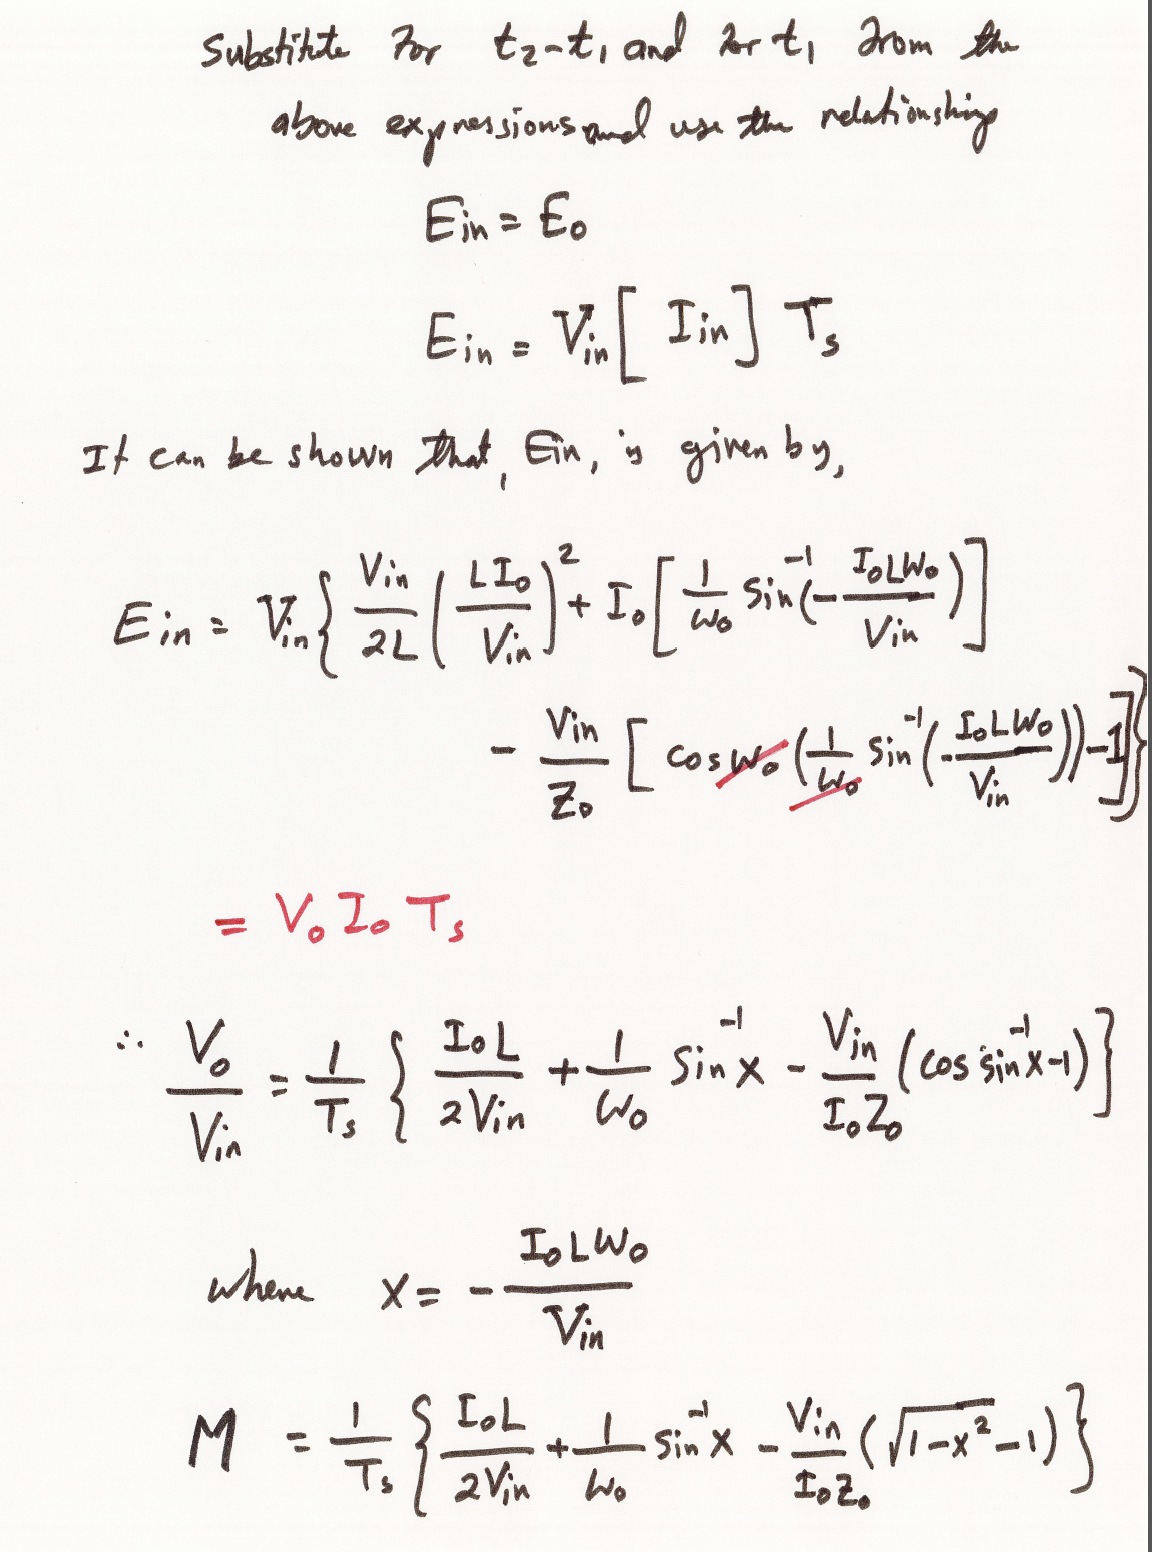 Substitute for t₂-t₁ and for t₁ from the
above expressions and use the relationship
Ein = Eo
Ein = Vin [ Iin ] Ts
It can be shown that, Ein, is given by,
Ein = Vin { Vin/2L ( LIo/Vin )² + Io [ 1/ωo sin⁻¹ (- IoLωo/Vin ) ]
- Vin/Zo [ cos ωo ( 1/ωo sin⁻¹ (- IoLωo/Vin )) - 1 ] }
= Vo Io Ts
∴ Vo/Vin = 1/Ts { IoL/2Vin + 1/ωo sin⁻¹x - Vin/IoZo (cos sin⁻¹x - 1) }
where x = - IoLωo/Vin
M = 1/Ts { IoL/2Vin + 1/ωo sin⁻¹x - Vin/IoZo ( √(1-x²) - 1 ) }